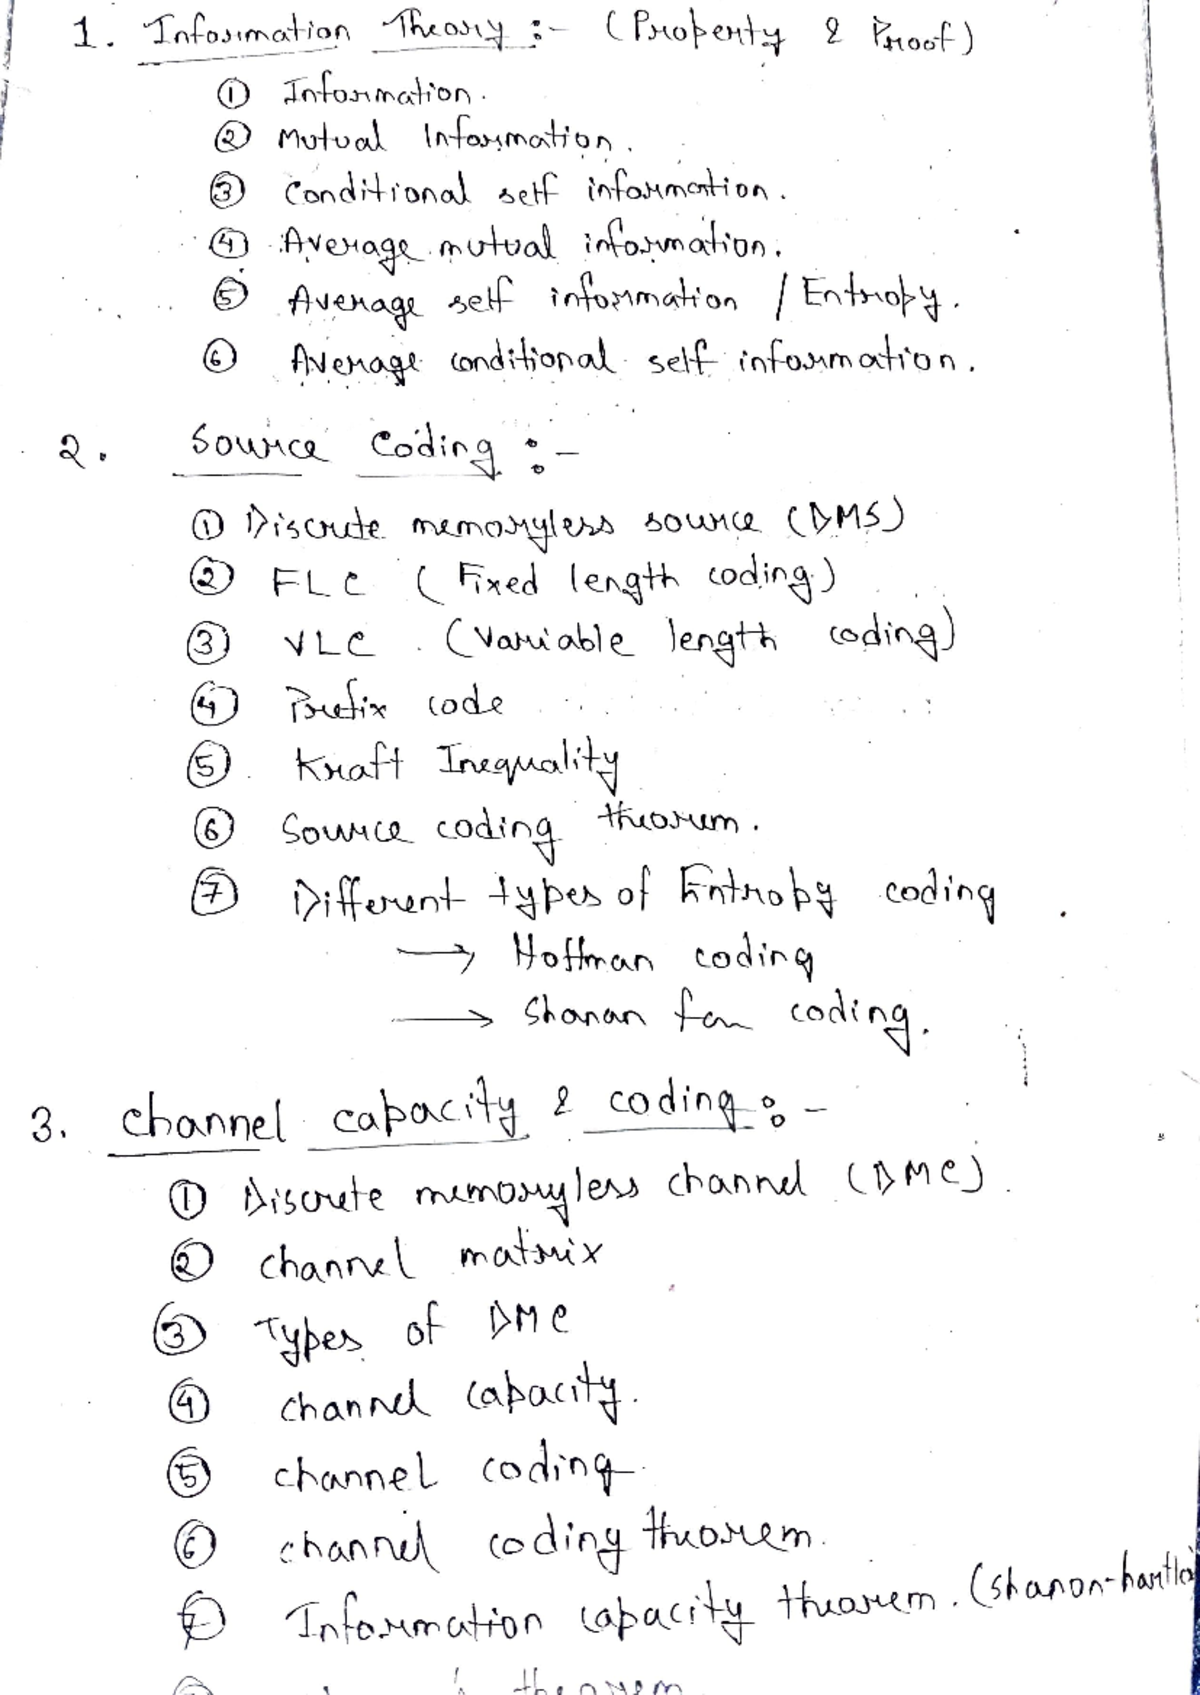 1. Information Theory :- (Property & Proof)
① Information.
② Mutual Information.
③ Conditional self information.
④ Average mutual information.
⑤ Average self information / Entropy.
⑥ Average conditional self information.
2. Source Coding :-
① Discrete memoryless source (DMS)
② FLC (Fixed length coding)
③ VLC (Variable length coding)
④ Prefix code
⑤ Kraft Inequality
⑥ Source coding theorem.
⑦ Different types of Entropy coding
→ Hoffman coding
→ Shanan fan coding.
3. channel capacity & coding :-
① Discrete memoryless channel (DMC).
② channel matrix
③ Types of DMC
④ channel capacity.
⑤ channel coding.
⑥ channel coding theorem.
⑦ Information capacity theorem. (shanon-hartle
theorem